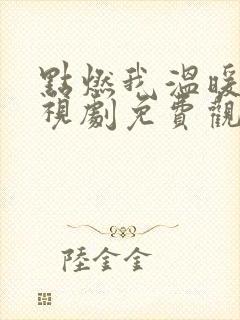 點燃我溫暖
視劇免費觀
陸金金